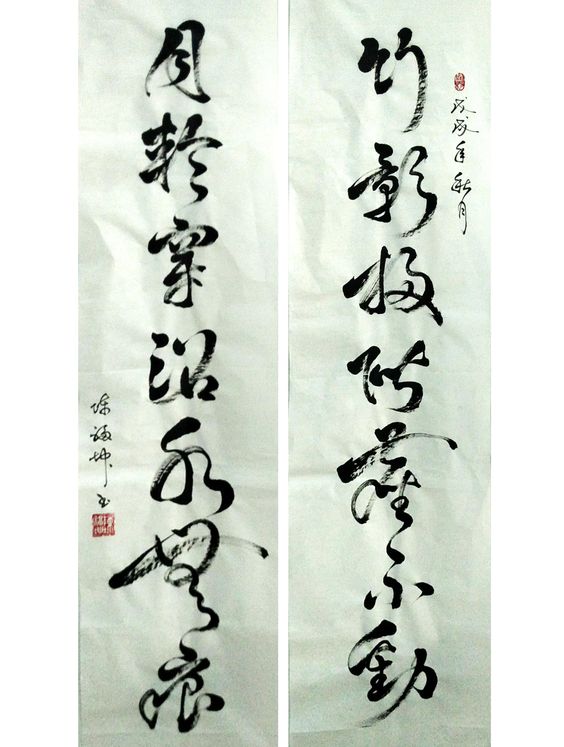 戊戌年秋月
竹影掃階塵不動
月輪穿沼水無痕
陳坤書